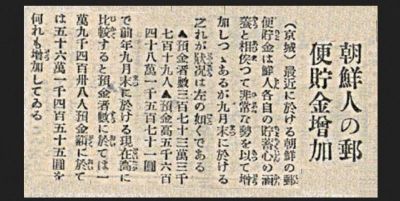 朝鮮人の郵
便貯金増加
(京城)最近に於ける朝鮮の郵
便貯金は鮮人各自の貯蓄心の涵
養と相俟つて非常な勢を以て増
加しつゝあるが九月末に於ける
之れが状況は左の如くである
▲預金者数三百七十三万三千
七百十九人▲預金高五千六百
四十八万一千五百七十一圓
で前年九月末に於ける現在高に
比較すると預金者数に於ては一
万九千四百卅八人預金額に於て
は五十六万一千四百五十五圓を
何れも増加してゐる